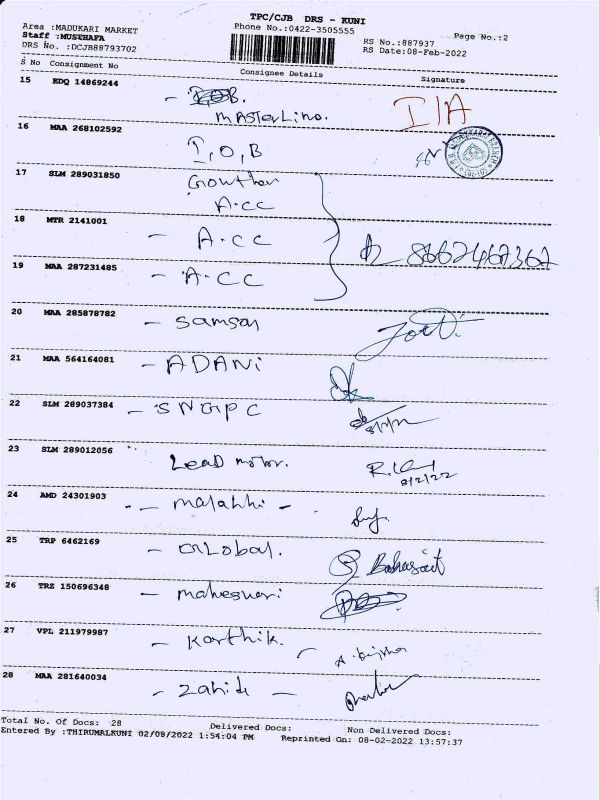 TPC/CJB DRS - KUNI
Area :MADUKARI MARKET
Phone No.:0422-3505555
Page No.:2
Staff :MUSTHAFA
RS No.:887937
DRS No. :DCJB88793702
RS Date:08-Feb-2022
S No Consignment No Consignee Details Signature
15 EDQ 14869244
MASTER Lino. I/A
16 MAA 268102592
I, O, B
17 SLM 289031850
Gowthan
A.CC
18 MTR 2141001 - A.CC
8662467367
19 MAA 287231485 - A.CC
20 MAA 285878782 - Samson
21 MAA 564164081 - ADANi
22 SLM 289037384 - SNGPC
23 SLM 289012056
Lead motor.
8/2/22
24 AMD 24301903 - malahhi -
25 TRP 6462169 - GLobal.
26 TRZ 150696348 - maheswari
27 VPL 211979987 - Karthik.
28 MAA 281640034 - Zahid -
Total No. Of Docs: 28 Delivered Docs: Non Delivered Docs:
Entered By :THIRUMALKUNI 02/08/2022 1:54:04 PM Reprinted On: 08-02-2022 13:57:37